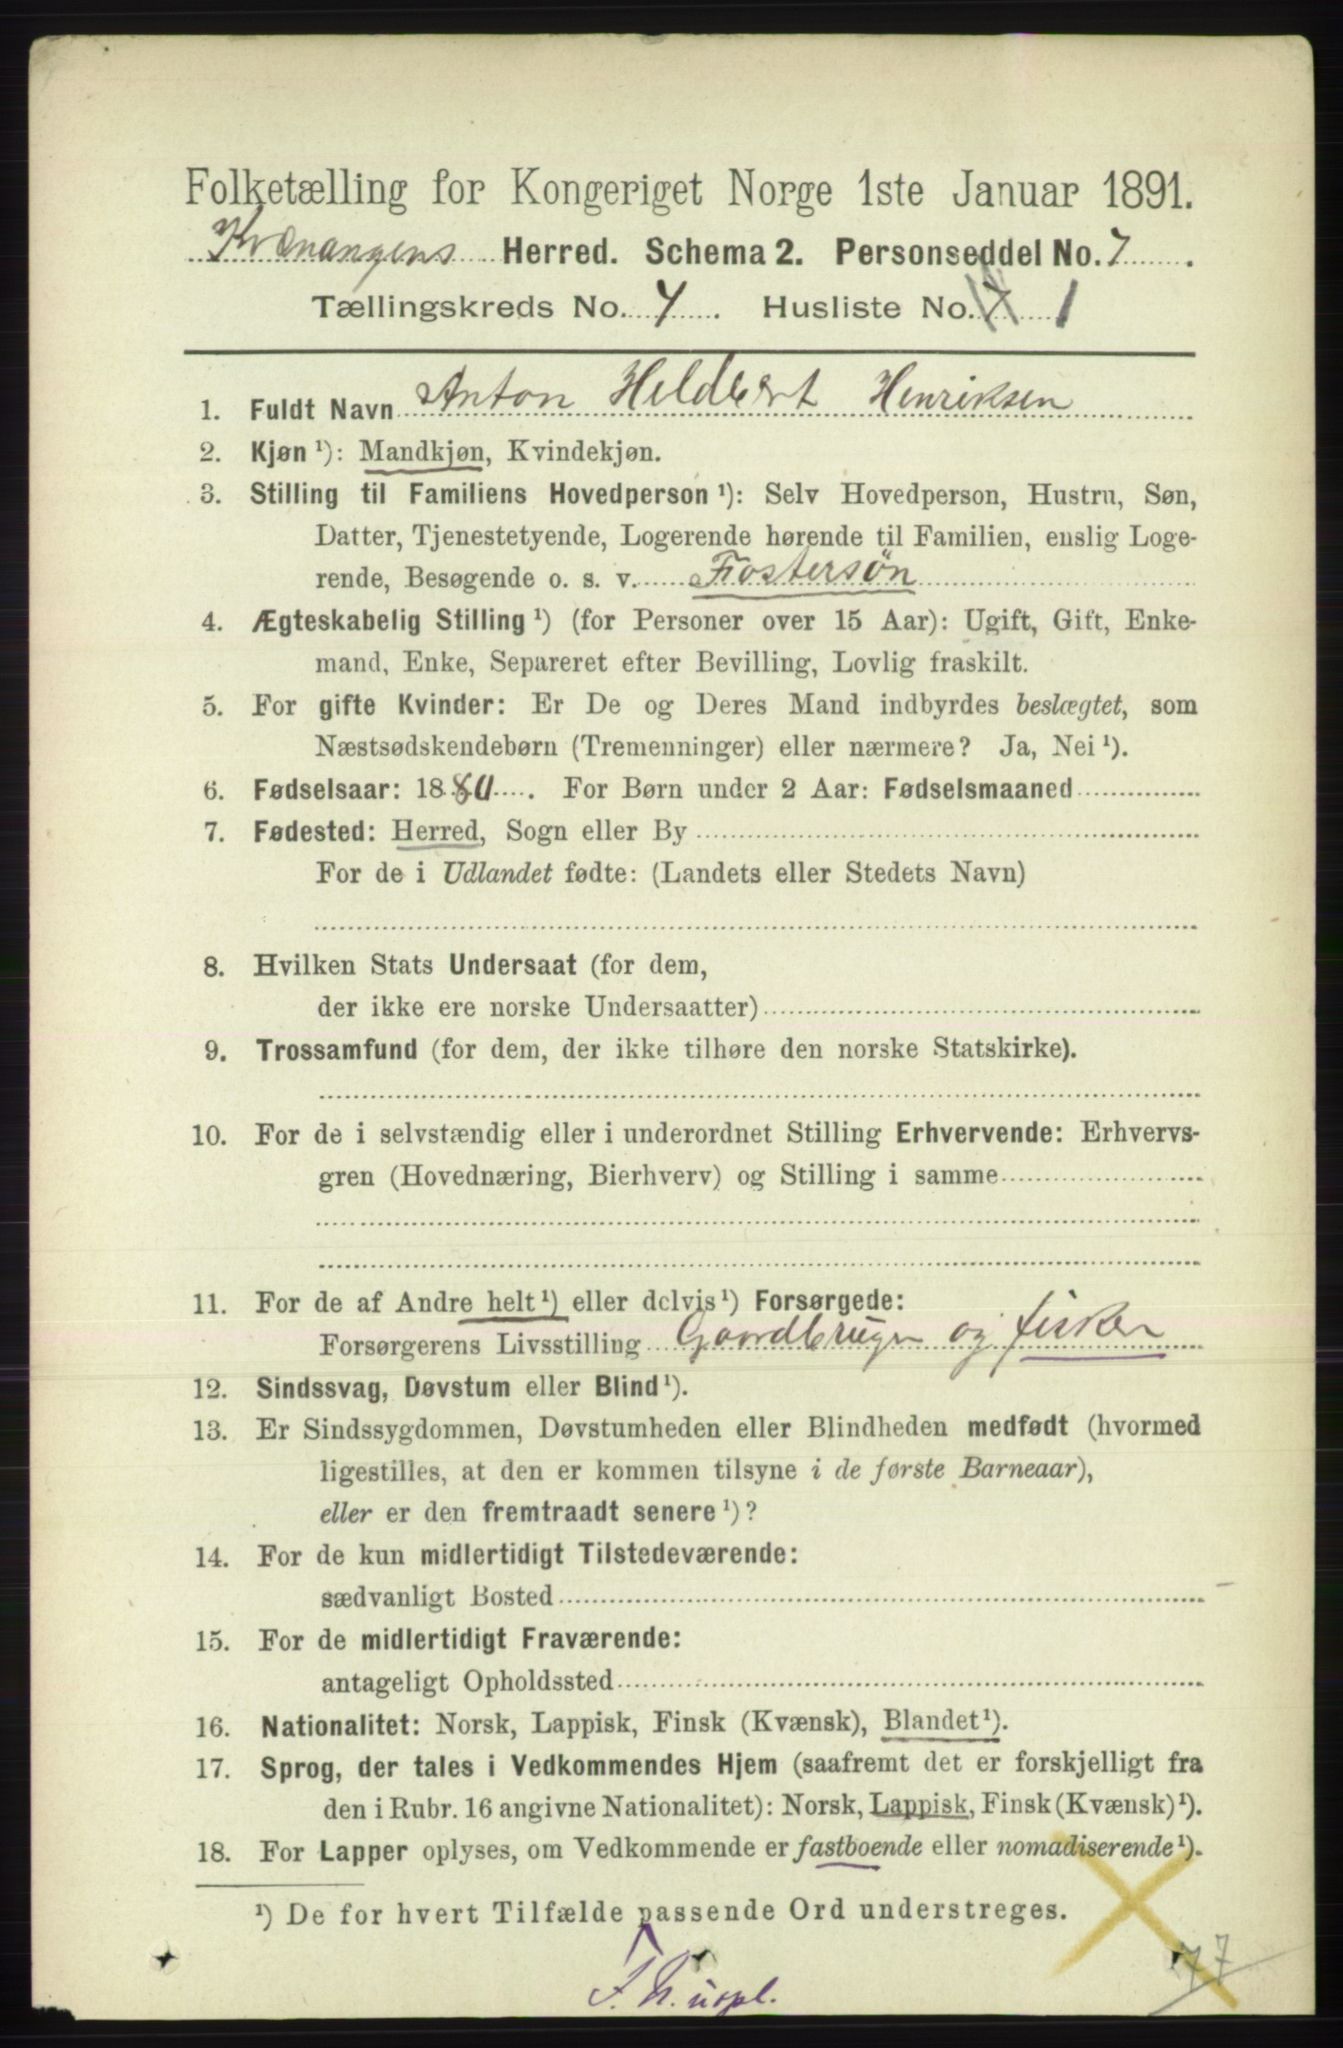 Folketælling for Kongeriget Norge 1ste Januar 1891.
Kvænangens Herred. Schema 2. Personseddel No. 7
Tællingskreds No. 4. Husliste No. 7 1
1. Fuldt Navn Anton Heldbert Henriksen
2. Kjøn ¹): Mandkjøn, Kvindekjøn.
3. Stilling til Familiens Hovedperson ¹): Selv Hovedperson, Hustru, Søn,
Datter, Tjenestetyende, Logerende hørende til Familien, enslig Loge-
rende, Besøgende o. s. v. Fostersøn
4. Ægteskabelig Stilling ¹) (for Personer over 15 Aar): Ugift, Gift, Enke-
mand, Enke, Separeret efter Bevilling, Lovlig fraskilt.
5. For gifte Kvinder: Er De og Deres Mand indbyrdes beslægtet, som
Næstsødskendebørn (Tremenninger) eller nærmere? Ja, Nei ¹).
6. Fødselsaar: 1880. For Børn under 2 Aar: Fødselsmaaned
7. Fødested: Herred, Sogn eller By
For de i Udlandet fødte: (Landets eller Stedets Navn)
8. Hvilken Stats Undersaat (for dem,
der ikke ere norske Undersaatter)
9. Trossamfund (for dem, der ikke tilhøre den norske Statskirke).
10. For de i selvstændig eller i underordnet Stilling Erhvervende: Erhvervs-
gren (Hovednæring, Bierhverv) og Stilling i samme
11. For de af Andre helt ¹) eller delvis ¹) Forsørgede:
Forsørgerens Livsstilling Gaardbruger og fisker
12. Sindssvag, Døvstum eller Blind ¹).
13. Er Sindssygdommen, Døvstumheden eller Blindheden medfødt (hvormed
ligestilles, at den er kommen tilsyne i de første Barneaar),
eller er den fremtraadt senere ¹)?
14. For de kun midlertidigt Tilstedeværende:
sædvanligt Bosted
15. For de midlertidigt Fraværende:
antageligt Opholdssted
16. Nationalitet: Norsk, Lappisk, Finsk (Kvænsk), Blandet ¹).
17. Sprog, der tales i Vedkommendes Hjem (saafremt det er forskjelligt fra
den i Rubr. 16 angivne Nationalitet): Norsk, Lappisk, Finsk (Kvænsk) ¹).
18. For Lapper oplyses, om Vedkommende er fastboende eller nomadiserende ¹).
¹) De for hvert Tilfælde passende Ord understreges.
77